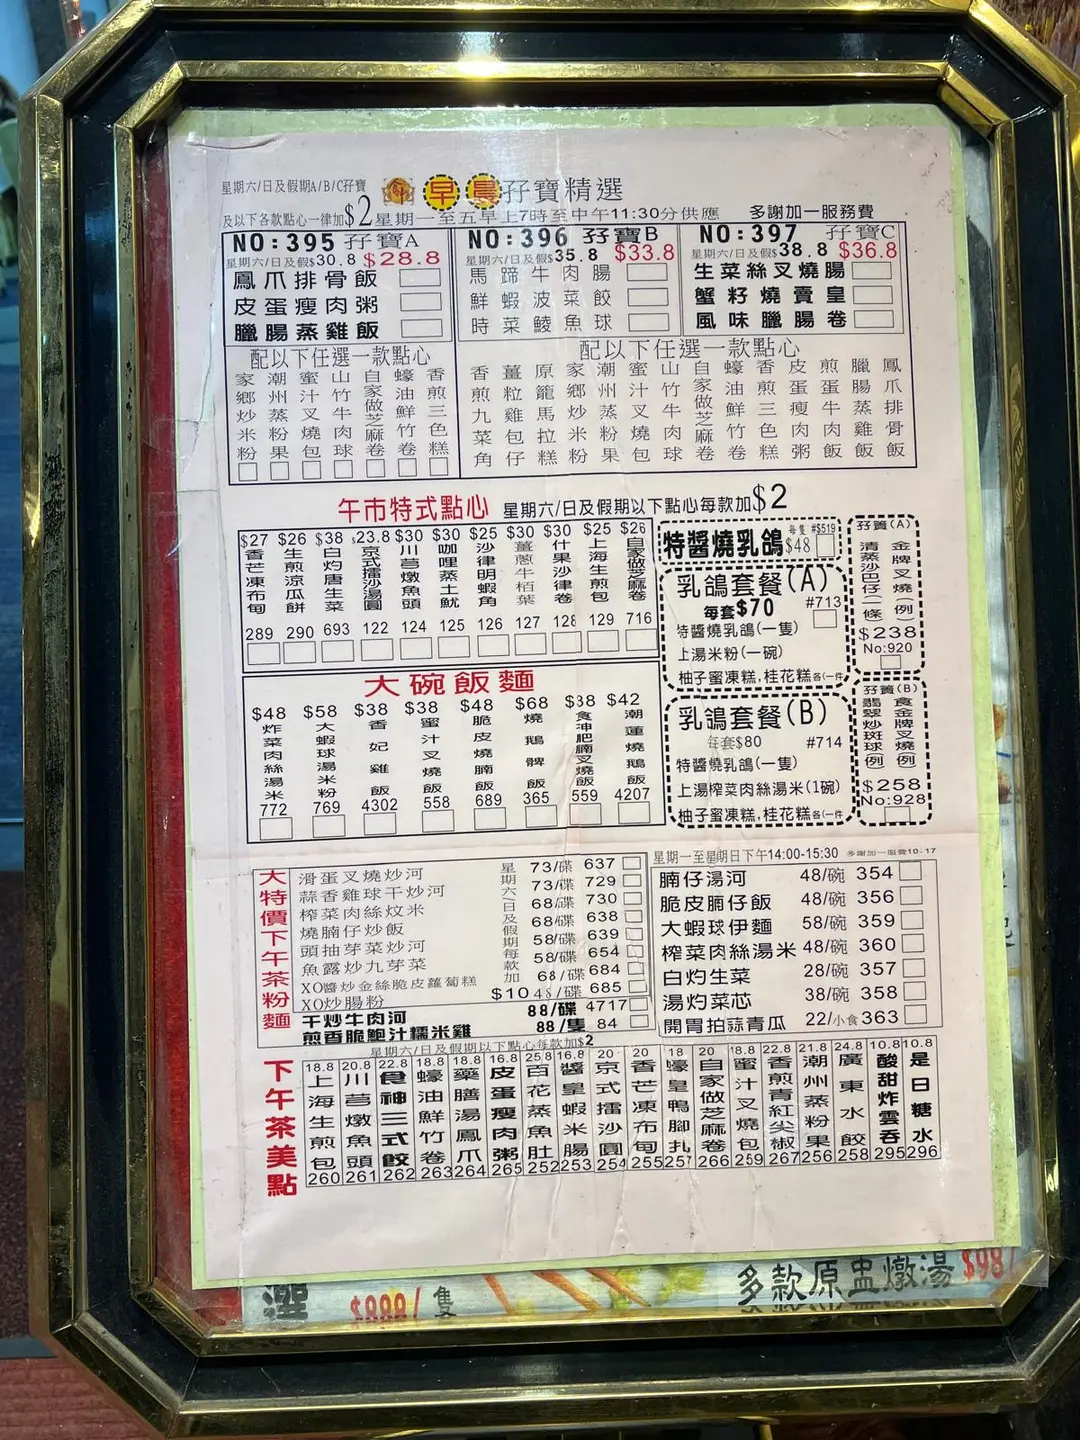 星期六/日及假期A/B/C孖寶 早晨孖寶精選
及以下各款點心一律加$2 星期一至五早上7時至中午11:30分供應 多謝加一服務費
NO:395 孖寶A
星期六/日及假$30.8 $28.8
鳳爪排骨飯
皮蛋瘦肉粥
臘腸蒸雞飯
NO:396 孖寶B
星期六/日及假$35.8 $33.8
馬蹄牛肉腸
鮮蝦波菜餃
時菜鯪魚球
NO:397 孖寶C
星期六/日及假$38.8 $36.8
生菜絲叉燒腸
蟹籽燒賣皇
風味臘腸卷
配以下任選一款點心
家鄉炒米粉
潮州蒸粉果
蜜汁叉燒包
山竹牛肉球
自家做芝麻卷
蠔油鮮竹卷
香煎三色糕
配以下任選一款點心
香煎九菜角
薑粒雞包仔
原籠馬拉糕
家鄉炒米粉
潮州蒸粉果
蜜汁叉燒包
山竹牛肉球
自家做芝麻卷
蠔油鮮竹卷
香煎三色糕
皮蛋瘦肉粥
煎蛋牛肉飯
臘腸蒸雞飯
鳳爪排骨飯
午市特式點心 星期六/日及假期以下點心每款加$2
$27 香芒凍布甸 289
$26 生煎涼瓜餅 290
$38 白灼唐生菜 693
$23.8 京式擂沙湯圓 122
$30 川芎燉魚頭 124
$30 咖哩蒸土魷 125
$25 沙律明蝦角 126
$30 薑蔥牛栢葉 127
$30 什果沙律卷 128
$25 上海生煎包 129
$26 自家做芝麻卷 716
特醬燒乳鴿 每隻 #$519
$48
乳鴿套餐(A)
每套$70 #713
特醬燒乳鴿(一隻)
上湯米粉(一碗)
柚子蜜凍糕,桂花糕各(一件
乳鴿套餐(B)
每套$80 #714
特醬燒乳鴿(一隻)
上湯榨菜肉絲湯米(1碗)
柚子蜜凍糕,桂花糕各(一件
孖寶(A)
金牌叉燒(例)
清蒸沙巴仔(一條)
$238
No:920
孖寶(B)
食金牌叉燒(例)
翡翠炒斑球(例)
$258
No:928
大碗飯麵
$48 炸菜肉絲湯米 772
$58 大蝦球湯米粉 769
$38 香妃雞飯 4302
$38 蜜汁叉燒飯 558
$48 脆皮燒腩飯 689
$68 燒鵝髀飯 365
$38 食神肥腩叉燒飯 559
$42 潮蓮燒鵝飯 4207
大特價下午茶粉麵
星期六/日及假期每款加
$10
滑蛋叉燒炒河 73/碟 637
蒜香雞球干炒河 73/碟 729
榨菜肉絲炆米 68/碟 730
燒腩仔炒飯 68/碟 638
頭抽芽菜炒河 58/碟 639
魚露炒九芽菜 58/碟 654
XO醬炒金絲脆皮蘿蔔糕 68/碟 684
XO炒腸粉 48/碟 685
干炒牛肉河 88/碟 4717
煎香脆鮑汁糯米雞 88/隻 84
星期一至星期日下午14:00-15:30 多謝加一服務費10.17
腩仔湯河 48/碗 354
脆皮腩仔飯 48/碗 356
大蝦球伊麵 58/碗 359
榨菜肉絲湯米 48/碗 360
白灼生菜 28/碗 357
湯灼菜芯 38/碗 358
開胃拍蒜青瓜 22/小食 363
星期六/日及假期以下點心每款加$2
下午茶美點
18.8 上海生煎包 260
20.8 川芎燉魚頭 261
22.8 食神三式餃 262
18.8 蠔油鮮竹卷 263
18.8 藥膳湯鳳爪 264
16.8 皮蛋瘦肉粥 265
25.8 百花蒸魚肚 252
16.8 醬皇蝦米腸 253
20 京式擂沙圓 254
20 香芒凍布甸 255
18 蠔皇鴨腳扎 257
20 自家做芝麻卷 266
18.8 蜜汁叉燒包 259
22.8 香煎青紅尖椒 267
21.8 潮州蒸粉果 256
24.8 廣東水餃 258
10.8 酸甜炸雲吞 295
10.8 是日糖水 296
選 $888/隻 多款原盅燉湯 $98/